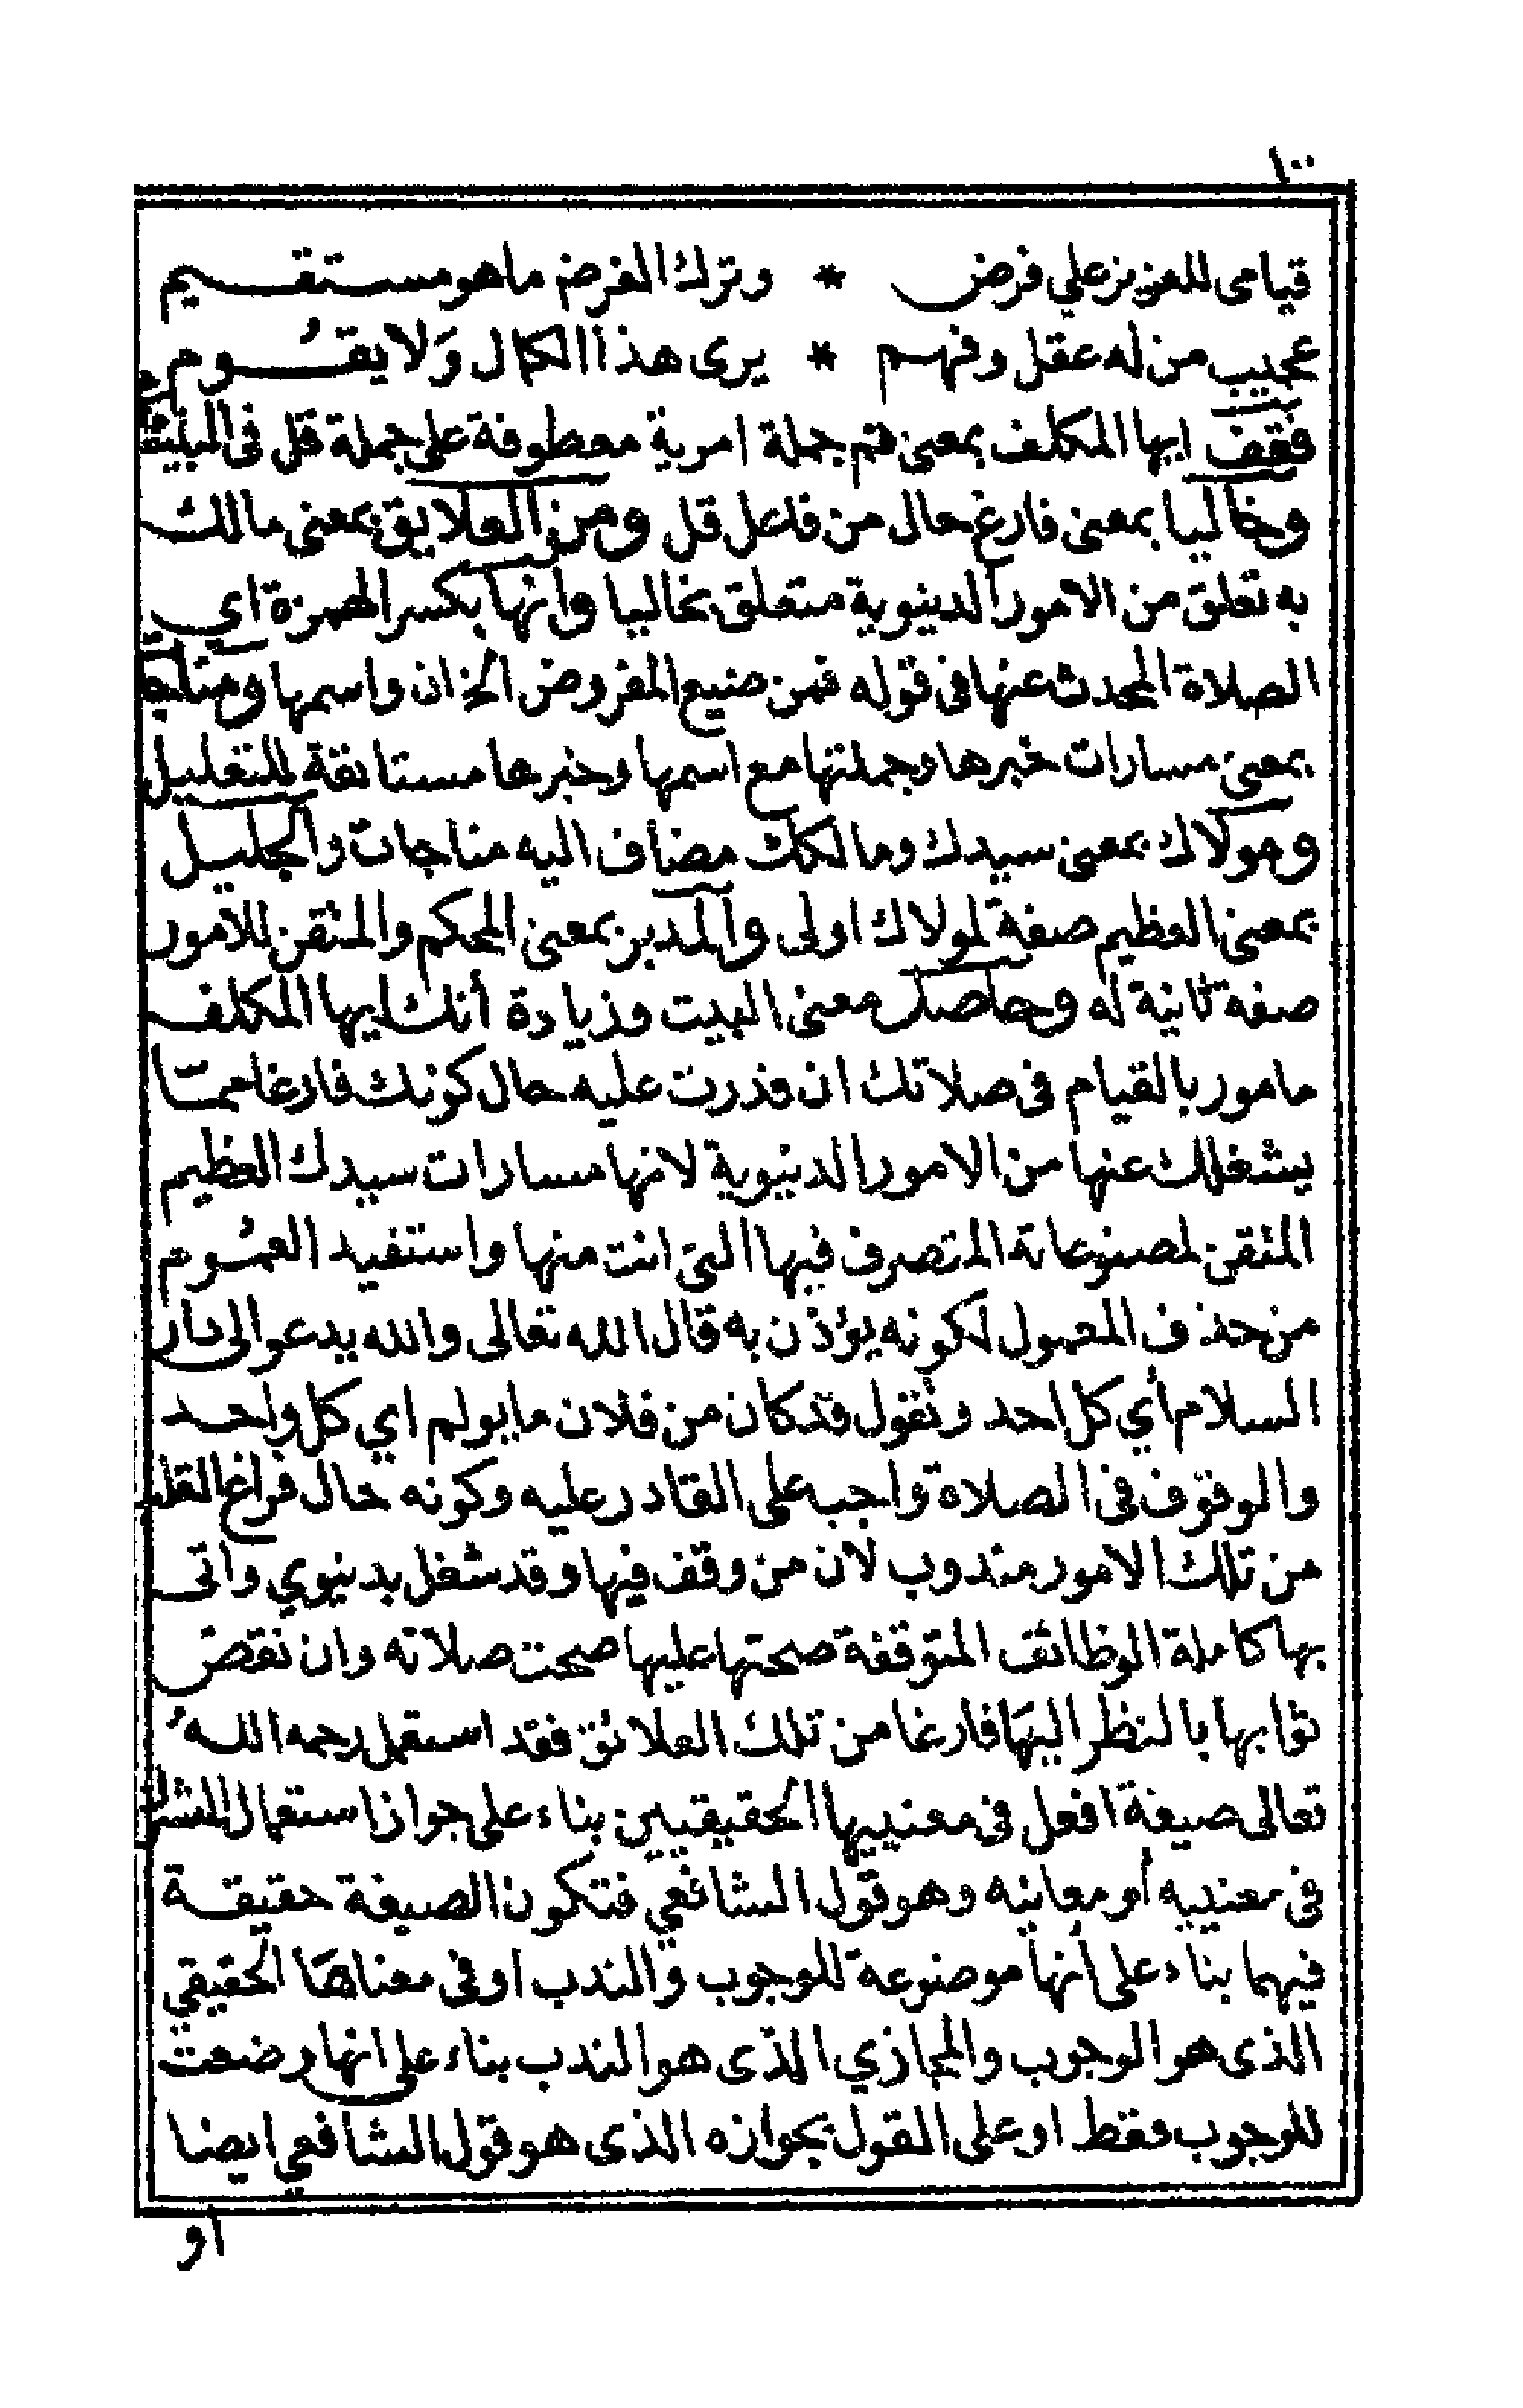 ١٠٠
قيامى للعزيز علي فرض * وترك الفرض ما هو مستقيم
عجيب من له عقل وفهم * يرى هذا الكمال وَلا يقُوم
فقف ايها المكلف بمعنى قم جملة امرية معطوفة على جملة قل فى البيت
وخاليا بمعنى فارغ حال من فاعل قل ومن العلايق بمعنى مالك
به تعلق من الامور الدينوية متعلق بخاليا وانها بكسر الهمزة اي
الصلاة المحدث عنها فى قوله فمن ضيع المفروض الخ ان واسمها ومناجات
بمعنى مسارات خبرها وجملتها مع اسمها وخبرها مستانفة للتعليل
ومولاك بمعنى سيدك ومالكك مضاف اليه مناجات والجليل
بمعنى العظيم صفة لمولاك اولى والمدبر بمعنى المحكم والمثقن للامور
صفة ثانية له وحاصل معنى البيت وزيادة أنك ايها المكلف
مامور بالقيام فى صلاتك ان قدرت عليه حال كونك فارغا مما
يشغلك عنها من الامور الدينوية لانها مسارات سيدك العظيم
المثقن لمصنوعاته المتصرف فيها التى انت منها واستفيد العمُوم
من حذف المعمول لكونه يؤذن به قال الله تعالى والله يدعو الى دار
السلام أي كل احد وتقول قد كان من فلان ما يولم اي كل واحد
والوقوف فى الصلاة واجب على القادر عليه وكونه حال فراغ القلب
من تلك الامور مندوب لان من وقف فيها وقد شغل بدنيوي واتى
بها كاملة الوظائف المتوقفة صحتها عليها صحت صلاته وان نقص
ثوابها بالنظر اليهَا فارغا من تلك العلائق فقد استعمل رحمه اللهُ
تعالى صيغة افعل فى معنييها الحقيقيين بناء على جواز استعمال المشترك
فى معنييه أو معانيه وهو قول الشافعي فتكون الصيغة حقيقة
فيهما بناء على أنها موضوعة للوجوب والندب او فى معناهَا الحقيقي
الذى هو الوجوب والمجازي الذى هو الندب بناء على انها وضعت
للوجوب فقط او على القول بجوازه الذى هو قول الشافعي ايضا
او